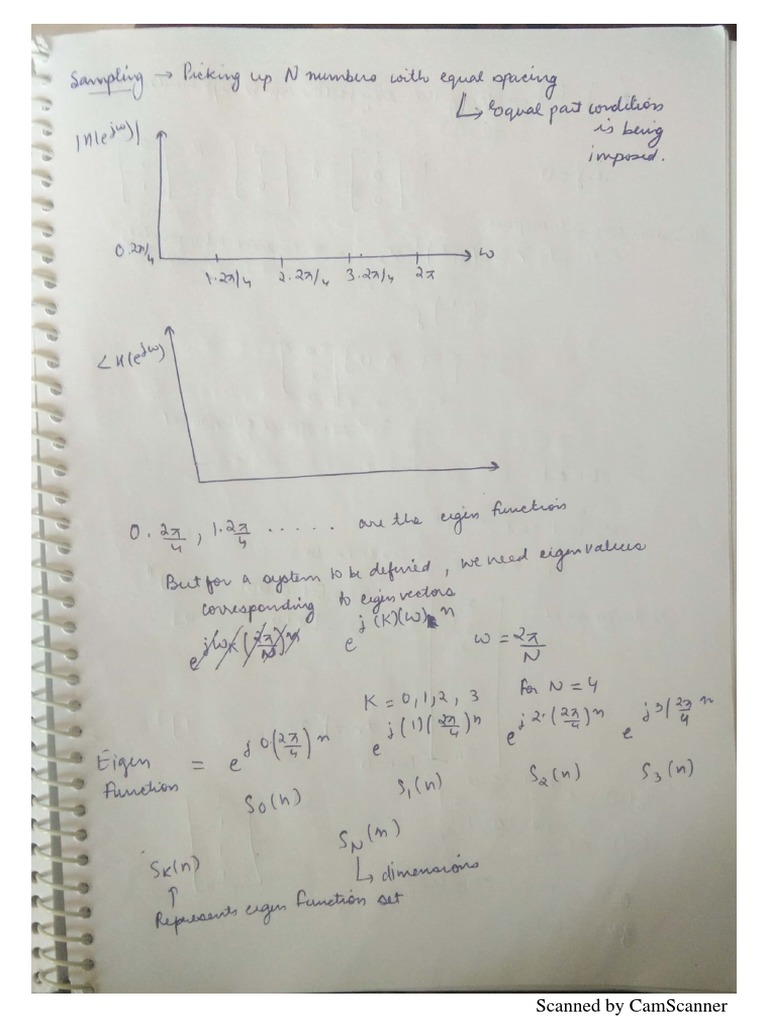 Sampling → Picking up N numbers with equal spacing
↳ Equal part condition
is being
imposed.
|H(e^jω)|
0.2π/4
ω
1.2π/4 2.2π/4 3.2π/4 2π
∠H(e^jω)
0. 2π/4 , 1. 2π/4 ..... are the eigen function
But for a system to be defined, we need eigen values
corresponding to eigen vectors
e^jωK(2π/N)n e^j(K)(ω)n ω = 2π/N
K = 0, 1, 2, 3 For N = 4
Eigen Function = e^j0(2π/4)n e^j(1)(2π/4)n e^j2.(2π/4)n e^j3(2π/4n
S₀(n) S₁(n) S₂(n) S₃(n)
S_K(n) S_N(n)
↑ ↳ dimensions
Represents eigen function set
Scanned by CamScanner